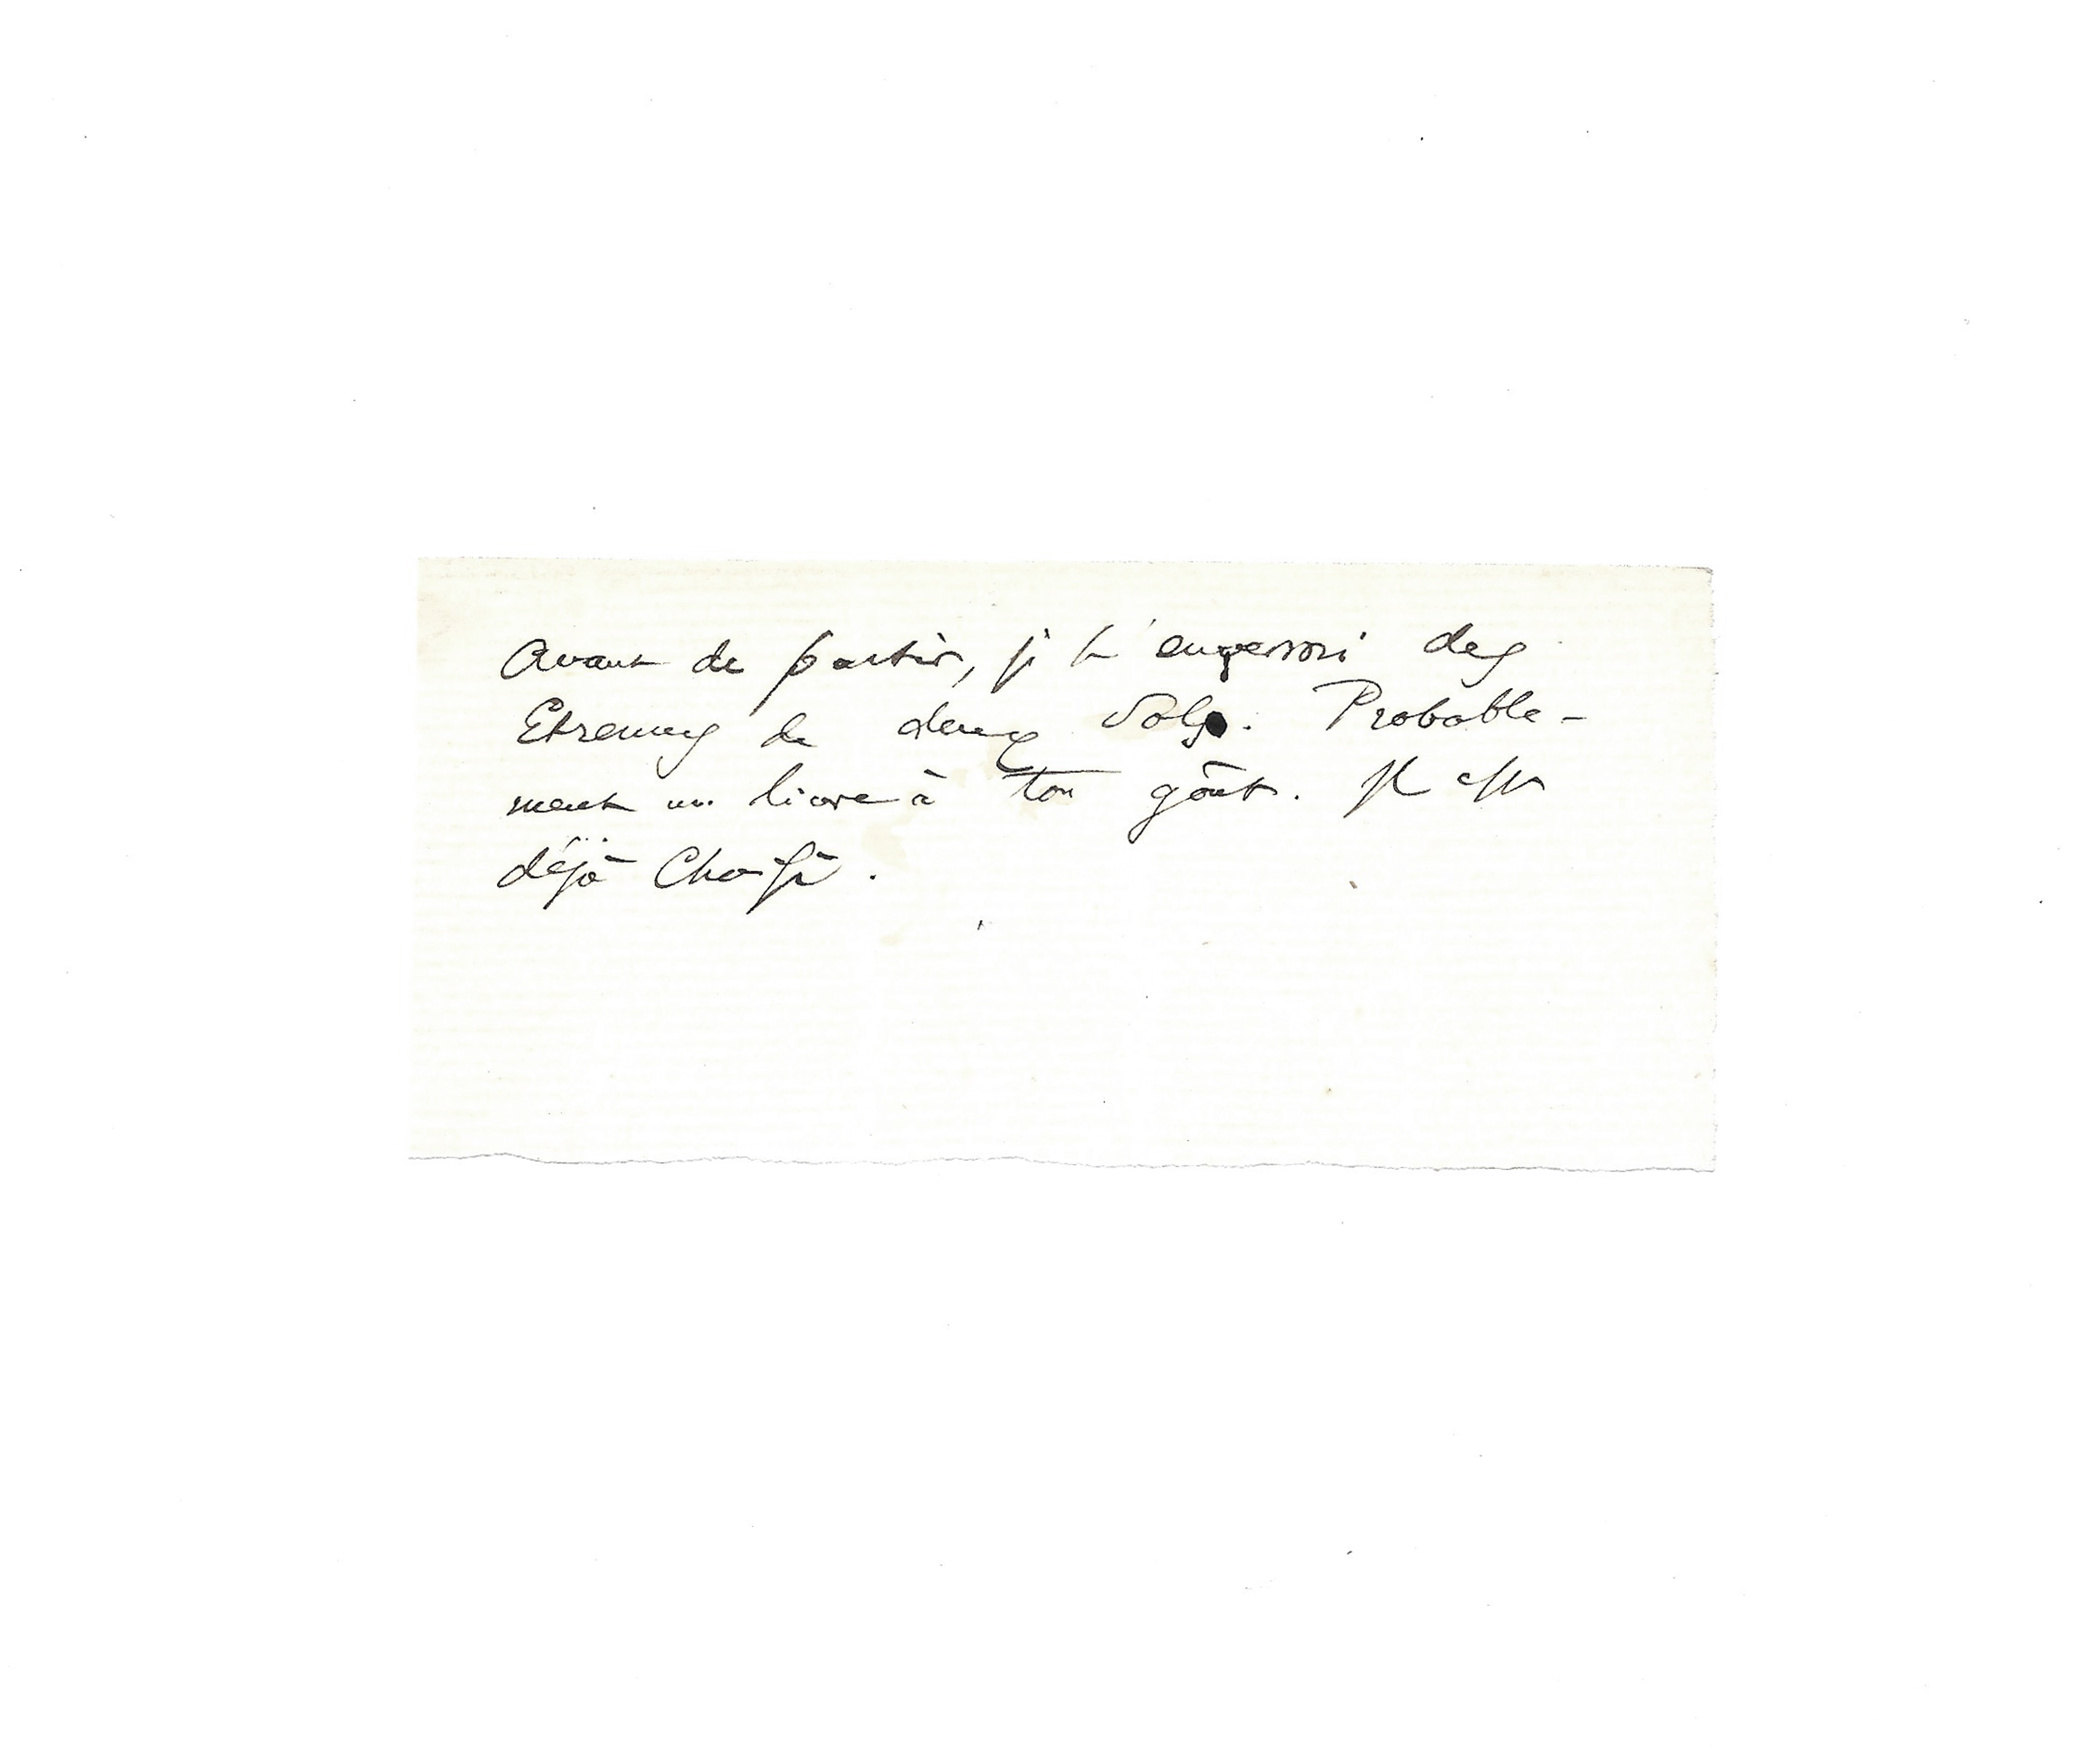 Avant de partir, je t'enverrai des
Etrennes de deux Sols. Probable-
ment un livre à ton goût. Il est
déjà Choisi.